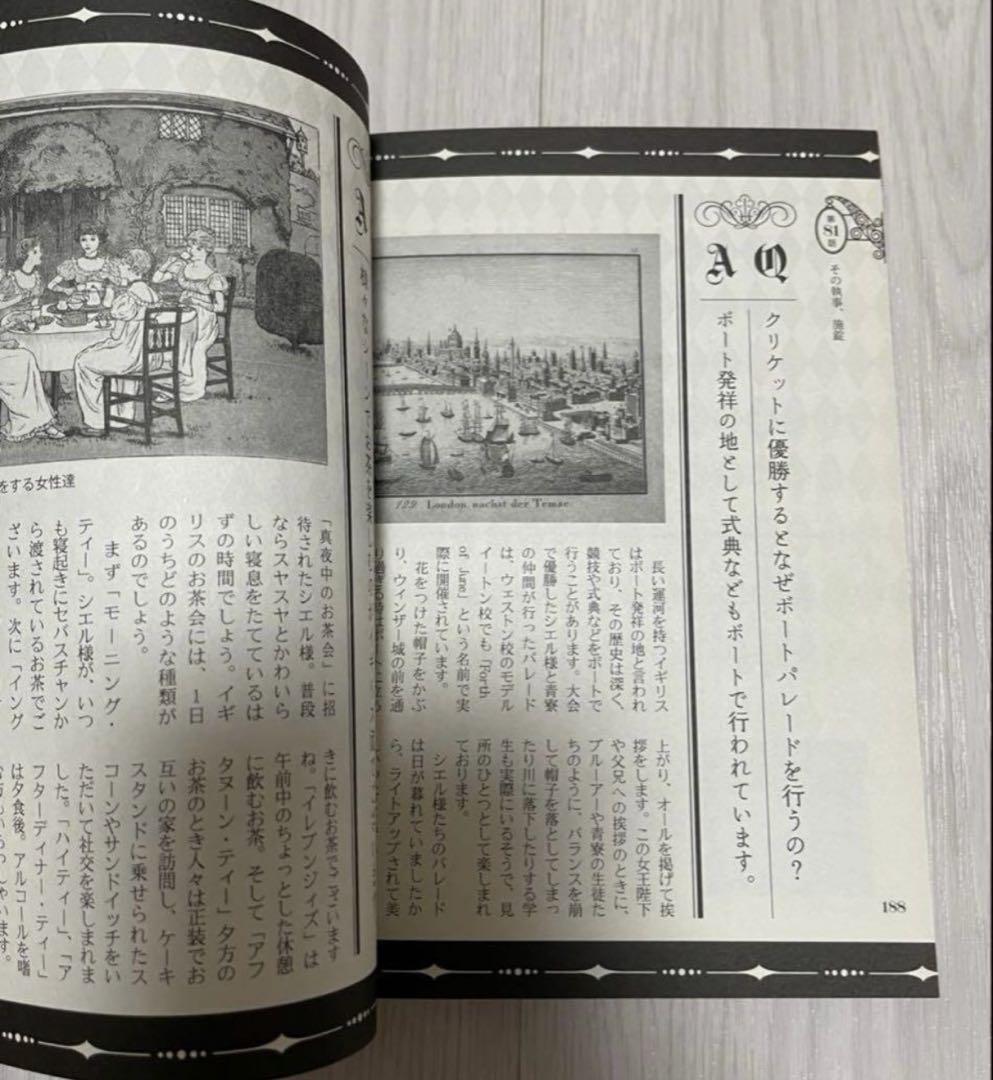 第81話
その執事、施錠
Q
クリケットに優勝するとなぜボートパレードを行うの？
A
ボート発祥の地として式典などもボートで行われています。
129 London nächst der Temse.
長い運河を持つイギリス
はボート発祥の地と言われ
ており、その歴史は深く、
競技や式典などをボートで
行うことがあります。大会
で優勝したシエル様と青寮
の仲間が行ったパレード
は、ウェストン校のモデル
イートン校でも「Forth
of June」という名前で実
際に開催されています。
花をつけた帽子をかぶ
り、ウィンザー城の前を通
上がり、オールを掲げて挨
拶をします。この女王陛下
や父兄への挨拶のときに、
ブルーアーや青寮の生徒た
ちのように、バランスを崩
して帽子を落としてしまっ
たり川に落下したりする学
生も実際にいるそうで、見
所のひとつとして楽しまれ
ております。
シエル様たちのパレード
は日が暮れていましたか
ら、ライトアップされて美
188
A
をする女性達
「真夜中のお茶会」に招
待されたシエル様。普段
ならスヤスヤとかわいら
しい寝息をたてているは
ずの時間でしょう。イギ
リスのお茶会には、1日
のうちどのような種類が
あるのでしょう。
まず「モーニング・
ティー」。シエル様が、いつ
も寝起きにセバスチャンか
ら渡されているお茶でご
ざいます。次に「イング
きに飲むお茶でございます
ね。「イレブンジィズ」は
午前中のちょっとした休憩
に飲むお茶。そして「アフ
タヌーン・ティー」夕方の
お茶のとき人々は正装でお
互いの家を訪問し、ケーキ
スタンドに乗せられたス
コーンやサンドイッチをい
ただいて社交を楽しまれま
した。「ハイティー」、「ア
フターディナー・ティー」
は夕食後。アルコールを嗜